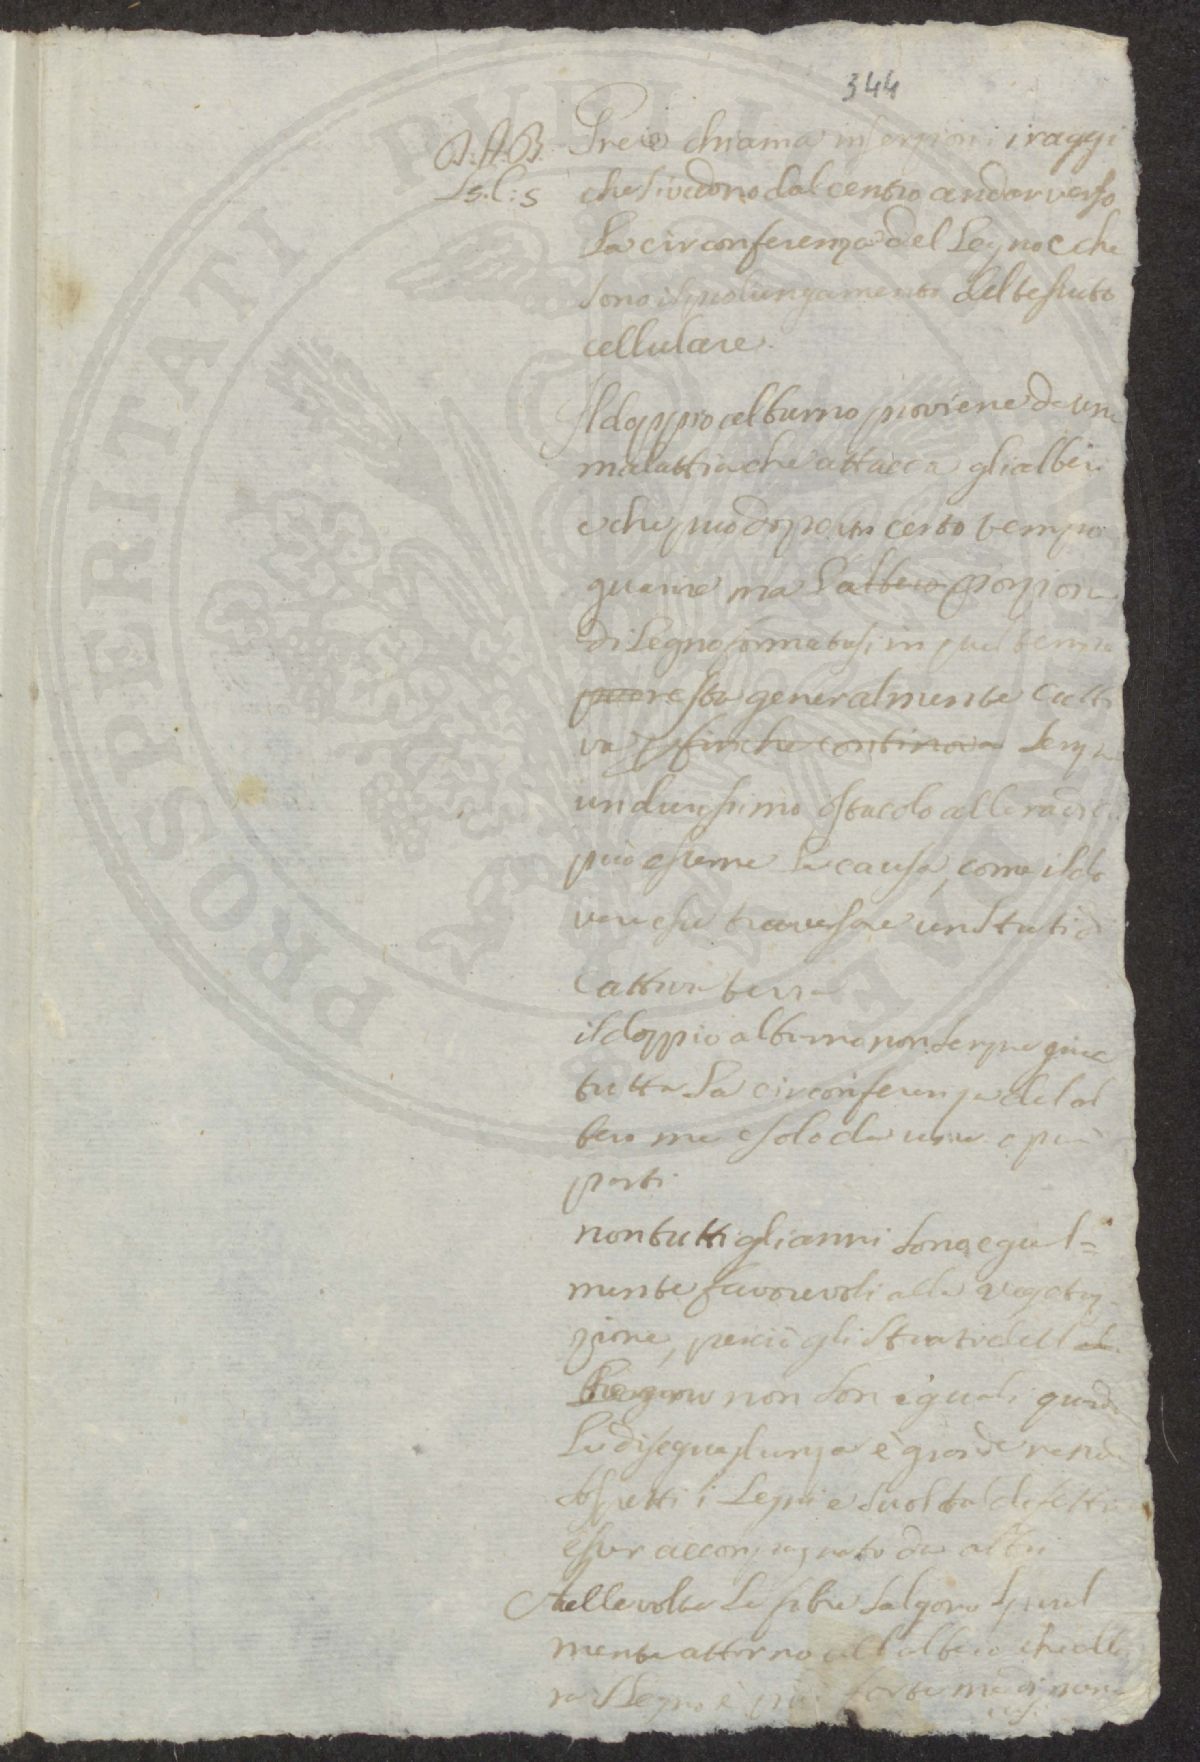 344
D.A.B.
Ls.C:s
Greve chiama inserzioni i raggi
che si vedono dal centro andar verso
La circonferenza del Legno e che
sono il prolungamento del tessuto
cellulare.
Il doppio alburno proviene da una
malattia che attacca gli alberi
e che può dopo un certo tempo
guarire ma l'albero porzione
di Legno formatasi in quel tempo
resta generalmente catti
va finche continova Senza
un durissimo ostacolo alle radici
può esserne la causa, come il do
vere esse traversare un Strato di
Cattiva terra
il doppio alburno non sempre gira
tutta La circonferenza del al
bero ma è solo da una o più
parti
non tutti gli anni sono egual=
mente favorevoli alla vegeta
zione, perciò gli strati dell al
non son eguali quando
La diseguaglianza è grande rende
sospetti i Legni e suol tal difetto
esser accompagnato da altri
Alle volte Le fibre salgono spiral
mente attorno all albero che allo
ra il Legno è più forte ma di meno
PROSPERITATI PUBLICAE